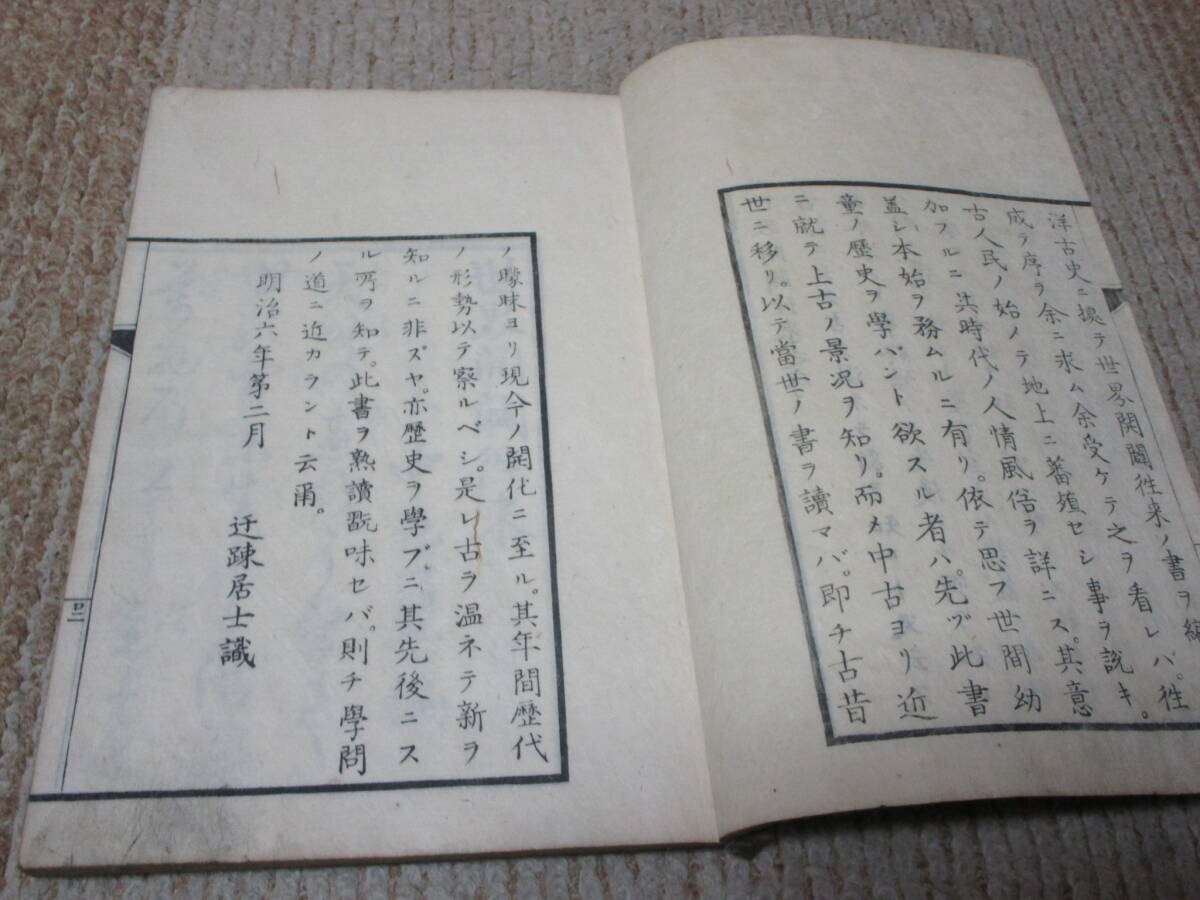 洋古史ニ據テ世界開闢徃来ノ書ヲ編
成テ序ヲ余ニ求ム余受ケテ之ヲ看レバ。徃
古人民ノ始メテ地上ニ蕃殖セシ事ヲ説キ。
加フルニ其時代ノ人情風俗ヲ詳ニス。其意
盖シ本始ヲ務ムルニ有リ。依テ思フ世間幼
童ノ歴史ヲ學バント欲スル者ハ。先ヅ此書
ニ就テ上古ノ景况ヲ知リ。而メ中古ヨリ近
世ニ移リ。以テ當世ノ書ヲ讀マバ。即チ古昔
ノ曚昧ヨリ現今ノ開化ニ至ル。其年間歴代
ノ形勢以テ察ルベシ。是レ古ヲ温ネテ新ヲ
知ルニ非ズヤ。亦歴史ヲ學ブニ其先後ニス
ル所ヲ知テ。此書ヲ熟讀翫味セバ。則チ學問
ノ道ニ近カラント云爾。
明治六年第二月 迂疎居士識
口二